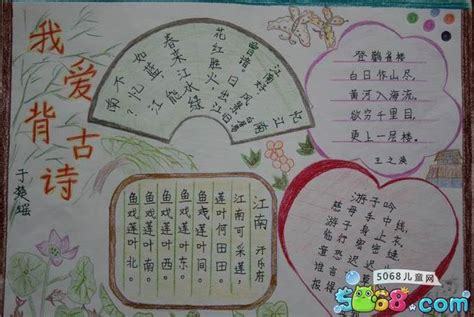 我爱背古诗
于楚瑶
江南好
风景旧
曾谙。日
花红胜火，
春来江水绿
如蓝
南？
登鹳雀楼
白日依山尽，
黄河入海流，
欲穷千里目，
更上一层楼。
王之涣
江南 汉乐府
江南可采莲，
莲叶何田田。
鱼戏莲叶间。
鱼戏莲叶东。
鱼戏莲叶南。
鱼戏莲叶北。
游子吟
慈母手中线，
游子身上衣，
临行密密缝，
意恐迟迟
谁
报得
5068儿童网
5068.com